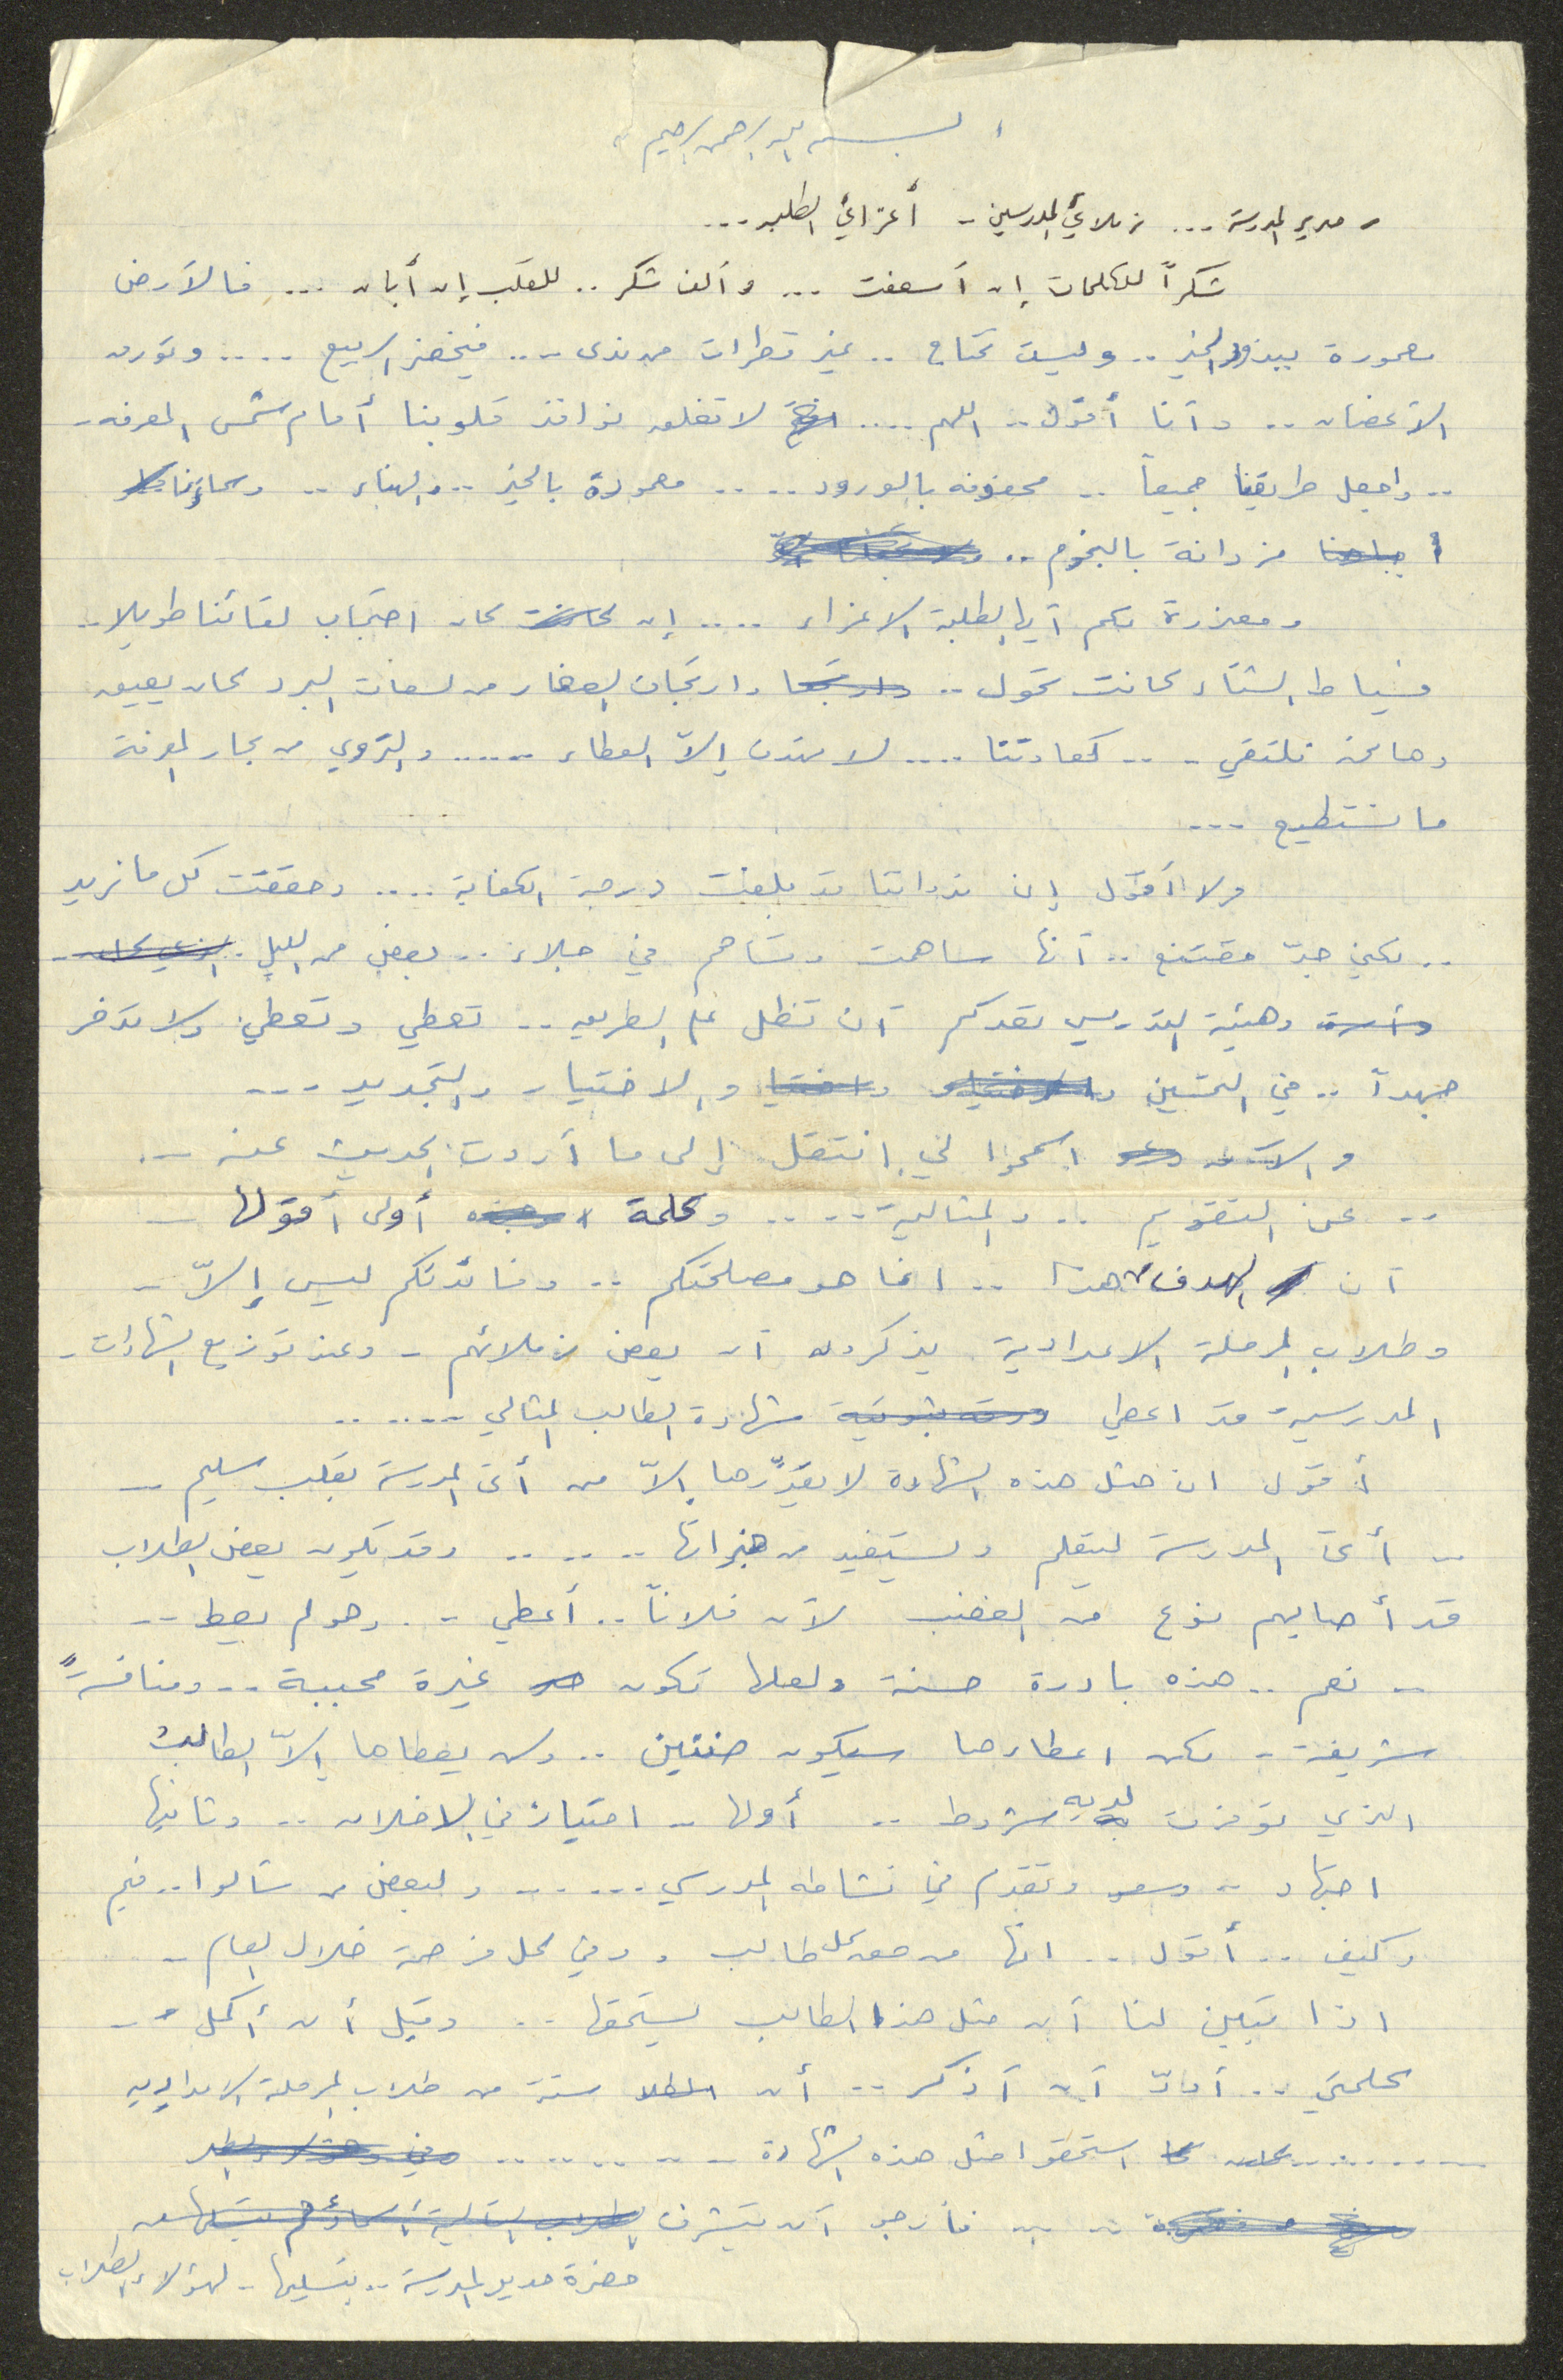 " بسم الله الرحمن الرحيم "
- مدير المدرسة ... زملائي المدرسين - أعزائي الطلبه ...
شكراً للكلمات إن أسعفت ... وألف شكر .. للقلب إن أبان ... فالأرض
معمورة ببذور الخير .. وليست تحتاج .. غير قطرات من ندى ... فيخضر الربيع .... وتورق
الأغصان .. وأنا أقول .. اللهم .... لا تغلق نوافذ قلوبنا أمام شمس المعرفه -
.. واجعل طريقنا جميعاً .. محفوفه بالورود .... معمورة بالخير .. والهناء .. وسماؤنا
مزدانة بالنجوم ..
ومعذرة لكم أيها الطلبة الاعزاء .... إن كان احتجاب لقائنا طويلا ..
فسياط الشتاء كانت تحول .. وارتجاف الصغار من لسعات البرد كان يعيق
وها نحن نلتقي - .. كعادتنا .... لا نهدف إلاّ العطاء ..... والتروي من بحار المعرفة
ما نستطيع ...
ولا أقول إن ندواتنا قد بلغت درجة الكفاية .... وحققت كل ما نريد
.. لكني جدّ مقتنع .. أنها ساهمت وتساهم في جلاء .. بعض من الليل .
وهيئة التدريس تعدكم أن تظل على الطريق .. تعطي وتعطي ولا تدخر
جهداً .. في التحسين والاختيار والتجديد ...
و اسمحوا لي انتقل إلى ما أردت الحديث عنه ..
.. عن التقويم .. والمثالية .... وكلمة أولى أقولها -
أن الهدف هذا .. انما هو مصلحتكم .. وفائدتكم ليس إلاّ -
وطلاب المرحلة الاعدادية يذكرون أن بعض زملائهم - وعند توزيع الشهادات -
المدرسية قد اعطي شهادة الطالب المثالي ......
أقول ان مثل هذه الشهادة لا يقدّرها إلاّ من أتى المدرسة بقلب سليم -
- أتى المدرسة ليتعلم وليستفيد من خبراتها .... وقد يكون بعض الطلاب
قد أصابهم نوع من الغضب لأن فلاناً .. أعطي .. وهو لم يعط ..
- نعم .. هذه بادرة حسنة ولعلها تكون غيرة محببة .. ومنافسةً
شريفة - لكن اعطاءها سيكون .. ولن يعطاها إلاّ الطالب
الذي توفرت لديه شروط .. أولها - امتياز في الاخلاق .. وثانيها
اجتهاد .. وتقدم في نشاطه المدرسي ..... ولبعض من سألوا .. فيم
وكيف .. أقول .. انها من حق كل طالب . وفي كل فرصة خلال العام -
اذا تبين لنا أن مثل هذا الطالب يستحقها .. وقبل أن أكمل -
كلمتي .. أودّ أن أذكر .. أن ستة من طلاب المرحلة الاعداديه
........ استحقوا مثل هذه الشهادة ........
.. فأرجو أن يتشرف
حضرة مدير المدرسة .. بتسليمها - لهؤلاء الطلاب